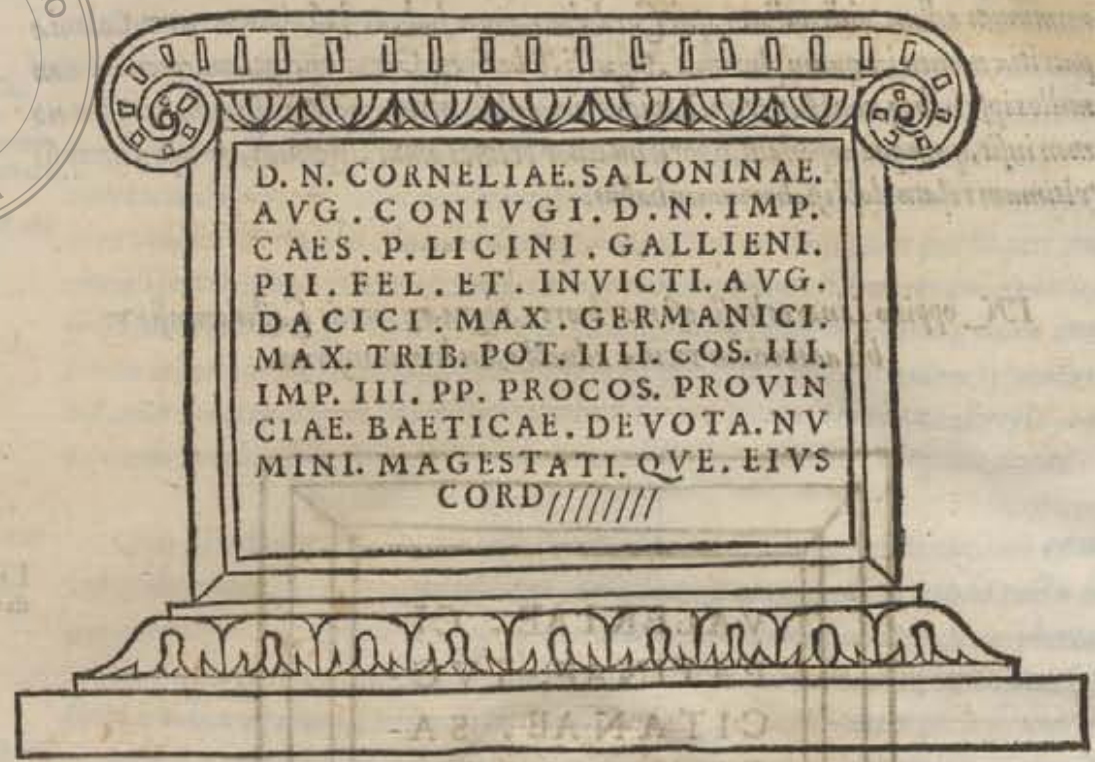 D. N. CORNELIAE. SALONINAE.
AVG. CONIVGI. D. N. IMP.
CAES. P. LICINI. GALLIENI.
PII. FEL. ET. INVICTI. AVG.
DACICI. MAX. GERMANICI.
MAX. TRIB. POT. IIII. COS. III.
IMP. III. PP. PROCOS. PROVIN
CIAE. BAETICAE. DEVOTA. NV
MINI. MAGESTATI. QVE. EIVS
CORD////////